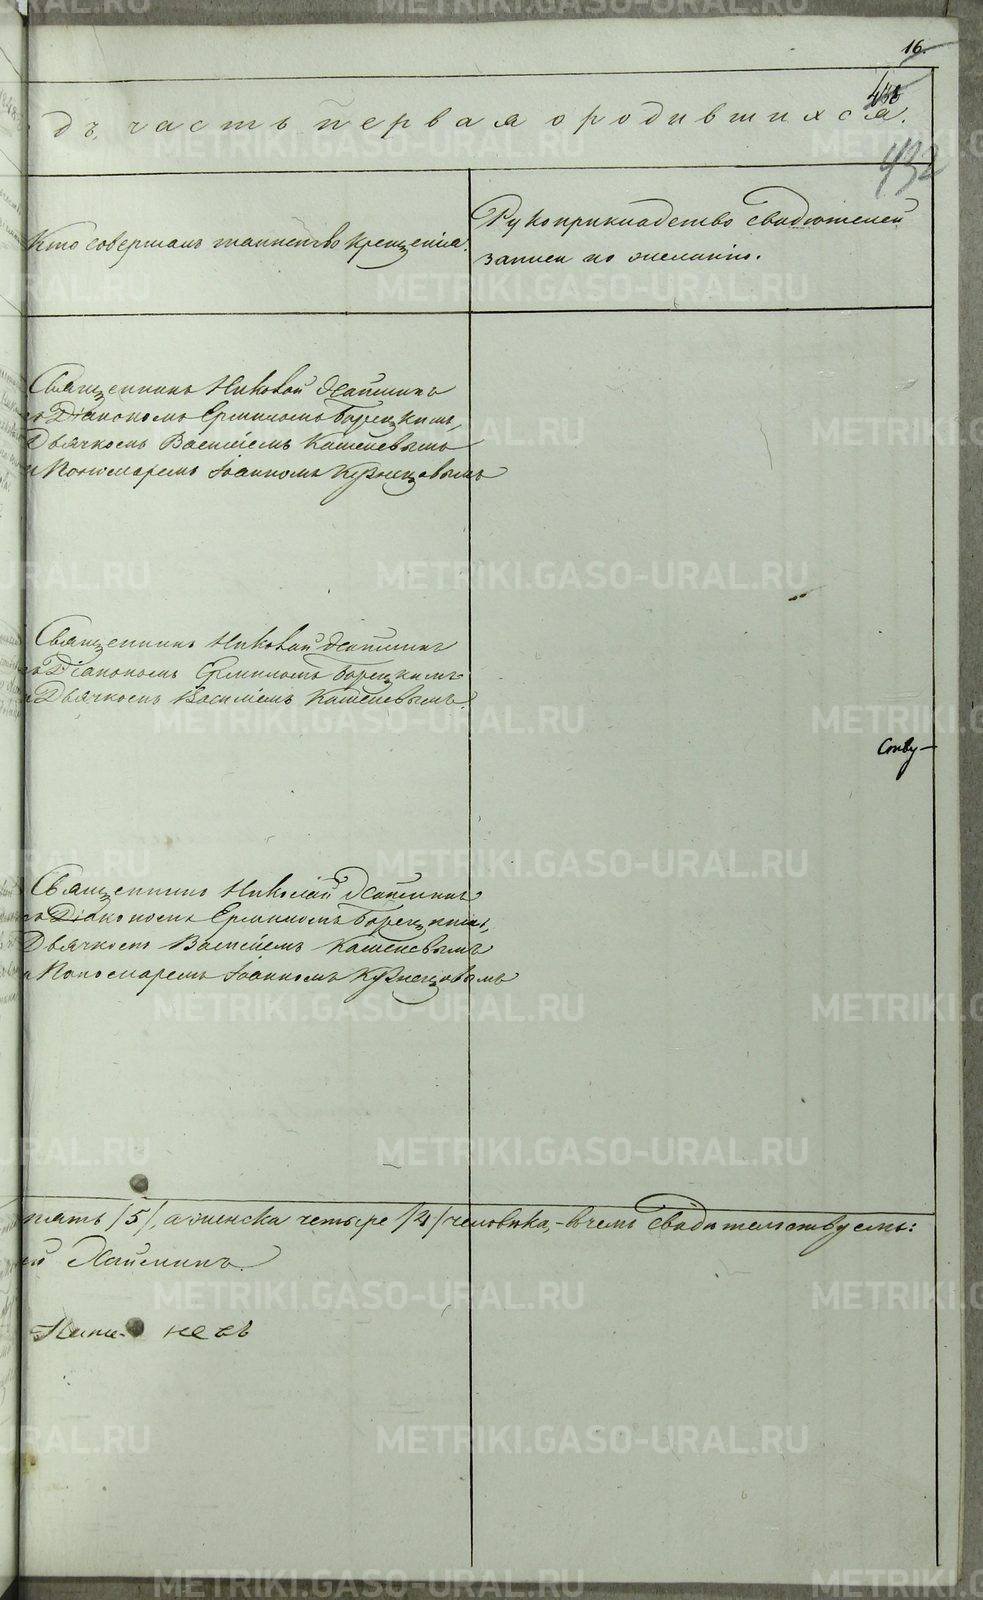 16.
432
дъ, часть первая о родившихся.
Кто совершалъ таинство крещенія.
Рукоприкладство свидѣтелей
записи по желанію.
Священникъ Николай
съ Діакономъ Ермиломъ Борецкимъ,
Дьячкомъ Василіемъ Кашеневымъ
и Пономаремъ Іоанномъ Кузнецовымъ
Священникъ Николай
съ Діакономъ Ермиломъ Борецкимъ
и Дьячкомъ Василіемъ Кашеневымъ.
Священникъ Николай
съ Діакономъ Ермиломъ Борецкимъ,
Дьячкомъ Василіемъ Кашеневымъ
и Пономаремъ Іоанномъ Кузнецовымъ
пять /5/, а женска четыре /4/ человѣка, – в чемъ свидѣтельствуемъ:
METRIKI.GASO-URAL.RU